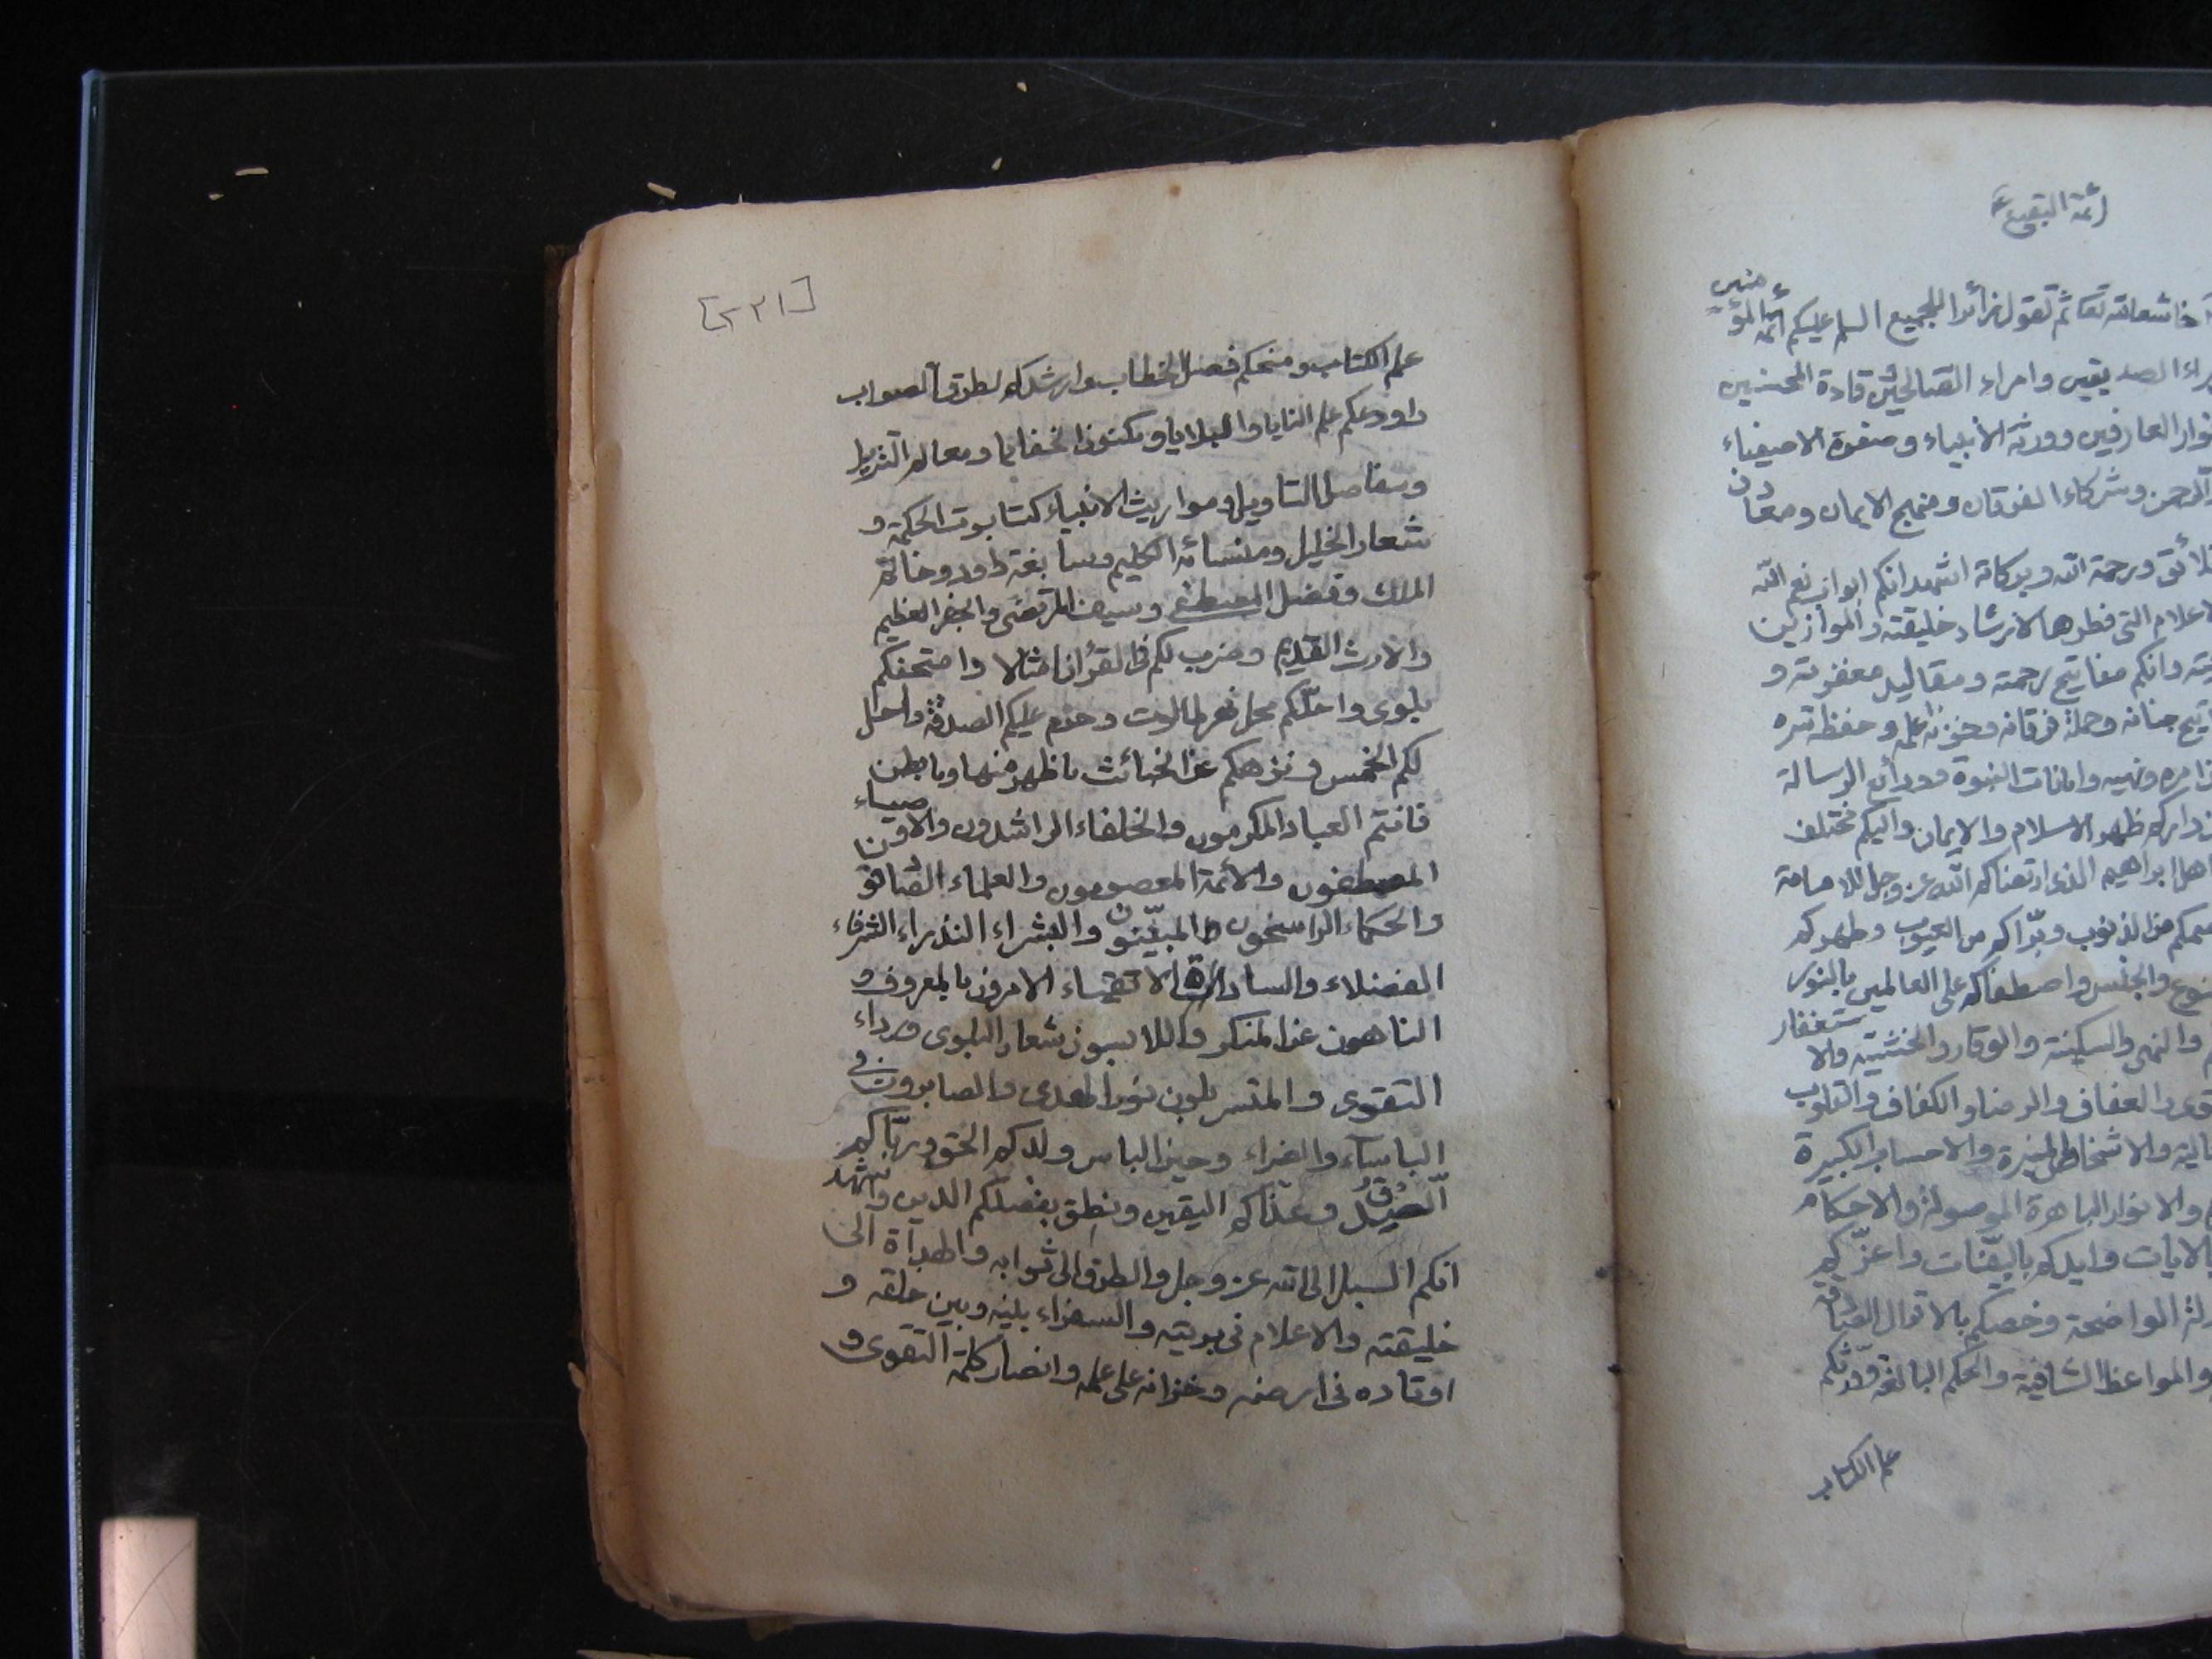 ائمة البقیع ع
خاشعا لله تعا ثم تقول زائرا للجميع السلم عليكم ائمة المؤمنين
الصديقين وامراء الصالحين وقادة المحسنين
العارفين وورثة الانبياء وصفوة الاصفياء
الرحمن وشركاء الفرقان ومنهج الايمان ومعادن
ورحمة الله وبركاته اشهد انكم ابواب نعم الله
الاعلام التى فطرها لارشاد خليقته والموازين
وانكم مفاتيح رحمته ومقاليد مغفرته و
جنانه وحملة فرقانه وخزنة علمه وحفظة سره
ونهيه وامانات النبوة وودائع الرسالة
ظهر الاسلام والايمان واليكم مختلف
اهل ابراهيم الذى ارتضاكم الله عز وجل للامامة
من الذنوب وبرّاكم من العيوب وطهركم
والجنس واصطفاكم على العالمين بالنور
والنهى والسكينة والوقار والخشية والاستغفار
والعفاف والرضا والكفاف والقلوب
والاشخاص المنيرة والاحساب الكبيرة
والانوار الباهرة الموصولة والاحكام
بالايات وايدكم بالبيّنات واعزّكم
الواضحة وخصكم بالاقوال الصادقة
والمواعظ الشافية والحكم البالغة وورّثكم
علم الكتاب
[٢٣١]
علم الكتاب ومنحكم فصل الخطاب وارشدكم لطرق الصواب
واودعكم علم المنايا والبلايا ومكنون الخفايا ومعالم التنزيل
ومفاصل التاويل ومواريث الانبياء كتابوت الحكمة و
شعار الخليل ومنسأة الكليم وسابغة داود وخاتم
الملك وفضل المصطفى وسيف المرتضى والجفر العظيم
والارث القديم وضرب لكم فى القرأن امثالا وامتحنكم
بلوى واحلّكم محل نهر طالوت وحرم عليكم الصدقة واحل
لكم الخمس ونزهكم عن الخبائث ما ظهر منها وما بطن
فانتم العباد المكرمون والخلفاء الراشدون والاوصياء
المصطفون والائمة المعصومون والعلماء الصادقون
والحكماء الراسخون المبيّنون والبشراء النذراء الشرفاء
الفضلاء والسادات الاتقياء الامرون بالمعروف و
الناهون عن المنكر واللابسون شعار البلوى ورداء
التقوى والمتسربلون نور الهدى والصابرون فى
الباساء والضراء وحين الباس ولدكم الحق وربّاكم
الصدق وغذاكم اليقين ونطق بفضلكم الدين واشهد
انكم السبيل الى الله عز وجل والطرق الى ثوابه والهداة الى
خليقته والاعلام فى بريته والسفراء بينه وبين خلقه و
اوتاده فى ارضه وخزانه على علمه وانصار كلمة التقوى و